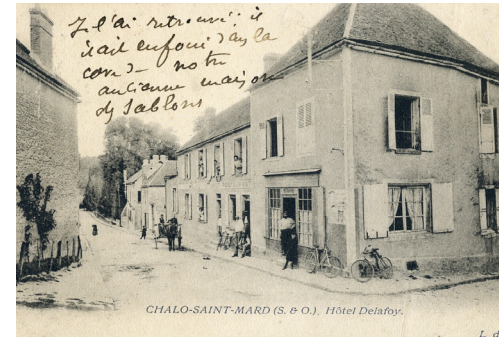 Je l'ai retrouvé: il
était enfoui dans la
cave - notre
ancienne maison
des Sablons
CHALO-SAINT-MARD (S. & O.), Hôtel Delafoy.
L. d